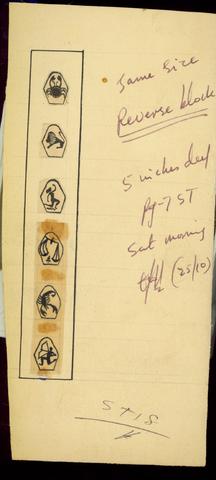 Same size
Reverse block
5 inches deep
Pg-7 ST
Sat morning
(25/10)